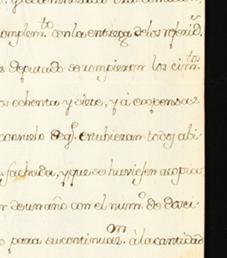 omplem.to con la entrega de los referid.s
s deputado se rompieron los cim.tos
os ochenta y siete, y á expensas
consuelo de q.e estubieran todos abi
fachada, y que se huviesen acopia
de un año con el num.o de
o para su continuaz.on á la cantidad